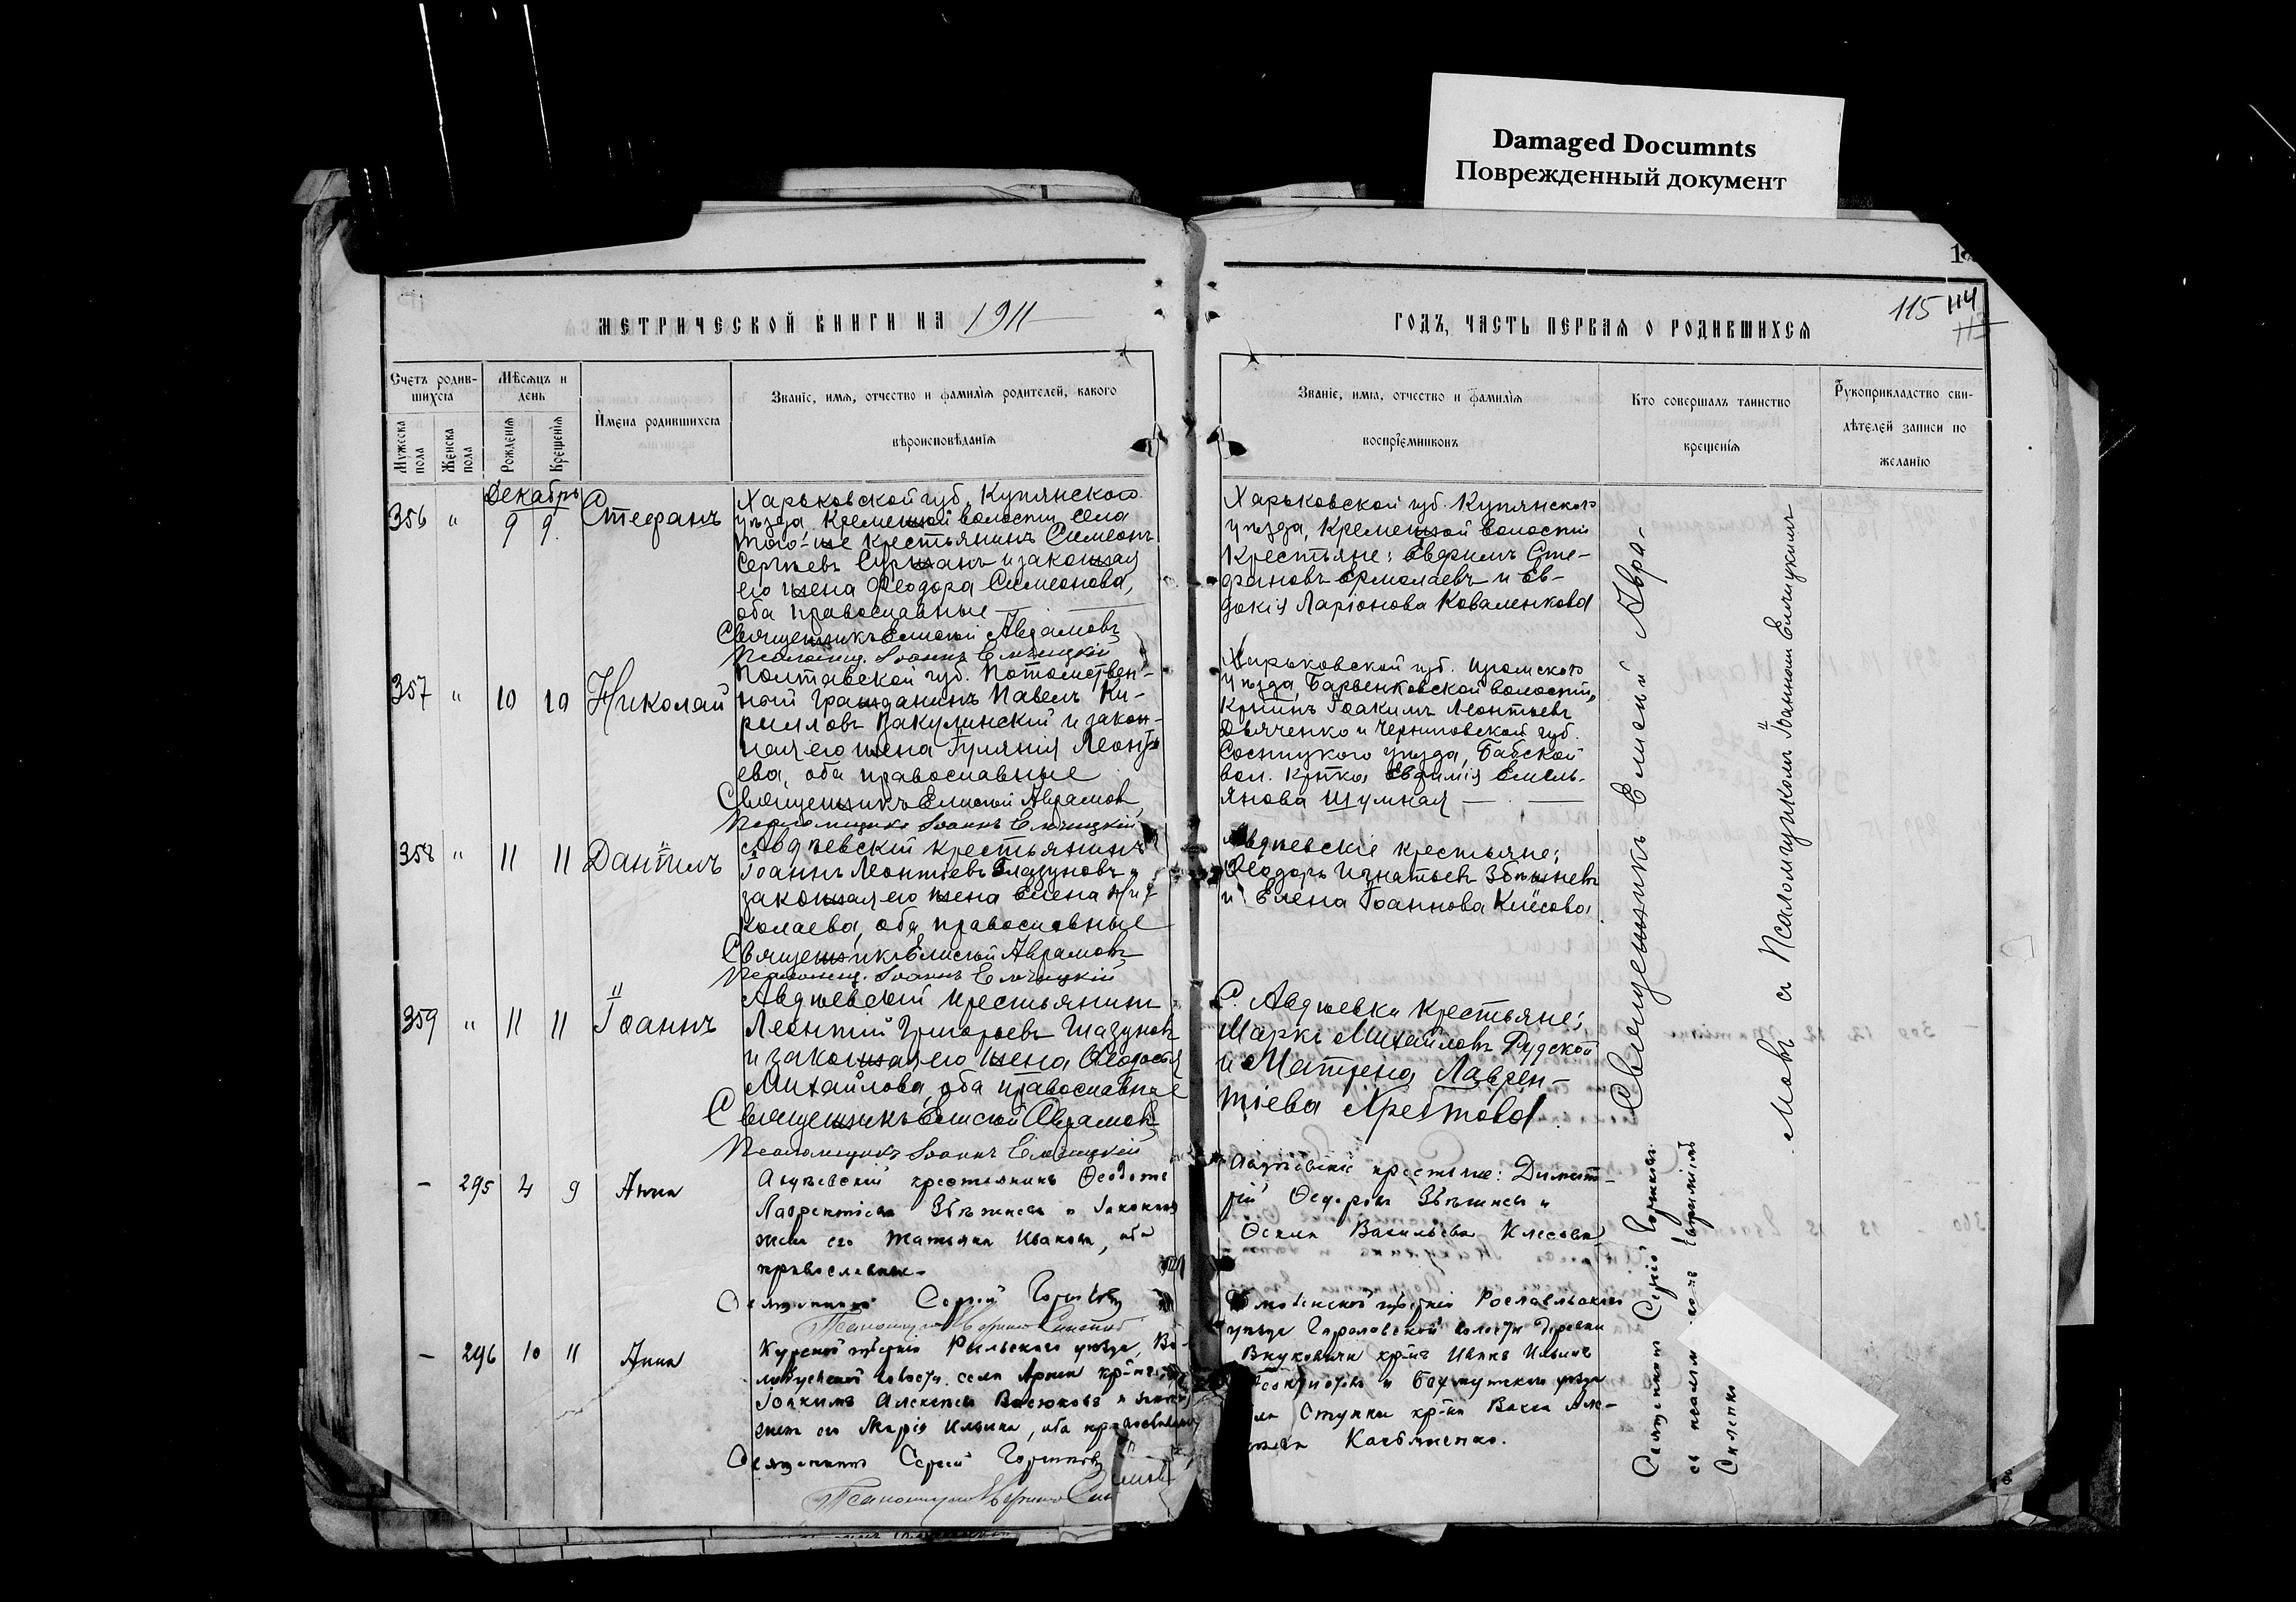 Damaged Documnts
Поврежденный документ
115 114
МЕТРИЧЕСКОЙ КНИГИ НА 1911
ГОДЪ, ЧАСТЬ ПЕРВАЯ О РОДИВШИХСЯ
Счетъ родив-
шихся
Мужеска пола
Женска пола
Мѣсяцъ и
день
Рожденія
Крещенія
Имена родившихся
Званіе, имя, отчество и фамилія родителей, какого
вѣроисповѣданія
Званіе, имя, отчество и фамилія
воспріемниковъ
Кто совершалъ таинство
крещенія
Рукоприкладство сви-
дѣтелей записи по
желанію
Декабрь
356 " 9 9 Стефанъ
Харьковской губ. Купянскаго
уѣзда, Кременной волости, села
того-же крестьянинъ Симеонъ
Сергѣевъ и законная
его жена Феодора Симеонова,
оба православные
Священникъ Елисей Аврамовъ
Псаломщ. Іоаннъ
Харьковской губ. Купянскаго
уѣзда, Кременной волости
Крестьяне: Евфимъ Сте-
фановъ Ермолаевъ и Ев-
докія Ларіонова Коваленкова
357 " 10 10 Николай
Полтавской губ. Потомствен-
ный гражданинъ Павелъ Ки-
рилловъ Вакулинскій и закон-
ная его жена Іуліанія Леонть
ева, оба православные
Священникъ Елисей Аврамовъ
Псаломщикъ Іоаннъ
Харьковской губ. Изюмскаго
уѣзда, Барвенковской волости,
Кр-нинъ Іоакимъ Леонтьевъ
Дьяченко и Черниговской губ.
Сосницкаго уѣзда, Бабской
вол. кр-нка Евфимія Емель-
янова Шумная
358 " 11 11 Даніилъ
Авдѣевскій крестьянинъ
Іоаннъ Леонтіевъ Глазуновъ и
законная его жена Елена Ни-
колаева, оба православные
Священникъ Елисей Аврамовъ
Псаломщ. Іоаннъ
Авдѣевскіе крестьяне:
Феодоръ Игнатьевъ Збѣжневъ
и Елена Іоаннова Клёсова
359 " 11 11 Іоаннъ
Авдѣевскій крестьянинъ
Леонтій Григорьевъ Глазуновъ
и законная его жена Феодосія
Михайлова, оба православные
Священникъ Елисей Аврамовъ
Псаломщикъ Іоаннъ
С. Авдѣевки крестьяне:
Маркъ Михайловъ Рудской
и Матрена Лаврен-
тіева
- 295 4 9 Анна
Авдѣевскій крестьянинъ Ѳеодотъ
Лаврентіевъ Збѣжневъ и законная
жена его Татьяна Иванова, оба
православные.
Священникъ Сергій
Псаломщикъ
Авдѣевскіе крестьяне: Димит-
рій Ѳедоровъ Збѣжневъ и
Васильева Клесова
- 296 10 11 Анна
Курской губерніи Рыльскаго уѣзда,
волости, села кр-нинъ
Іоакимъ Алексѣевъ Васюковъ и законная
жена его Марія Ильина, оба православные
Священникъ Сергій
Псаломщикъ
Смоленской губерніи Рославльскаго
уѣзда волости деревни
кр-нъ Иванъ Ильинъ
и Бахмутскаго уѣзда
Ступки кр-ка
Касьяненко.
Священникъ Елисей Авра-
мовъ съ Псаломщикомъ Іоанномъ
Священникъ Сергій
съ псалом